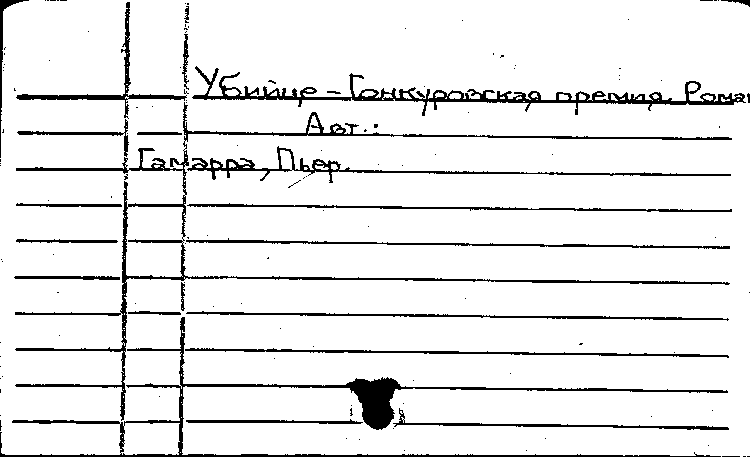 Убийце - Гонкуровская премия. Роман
Авт.:
Гамарра, Пьер.